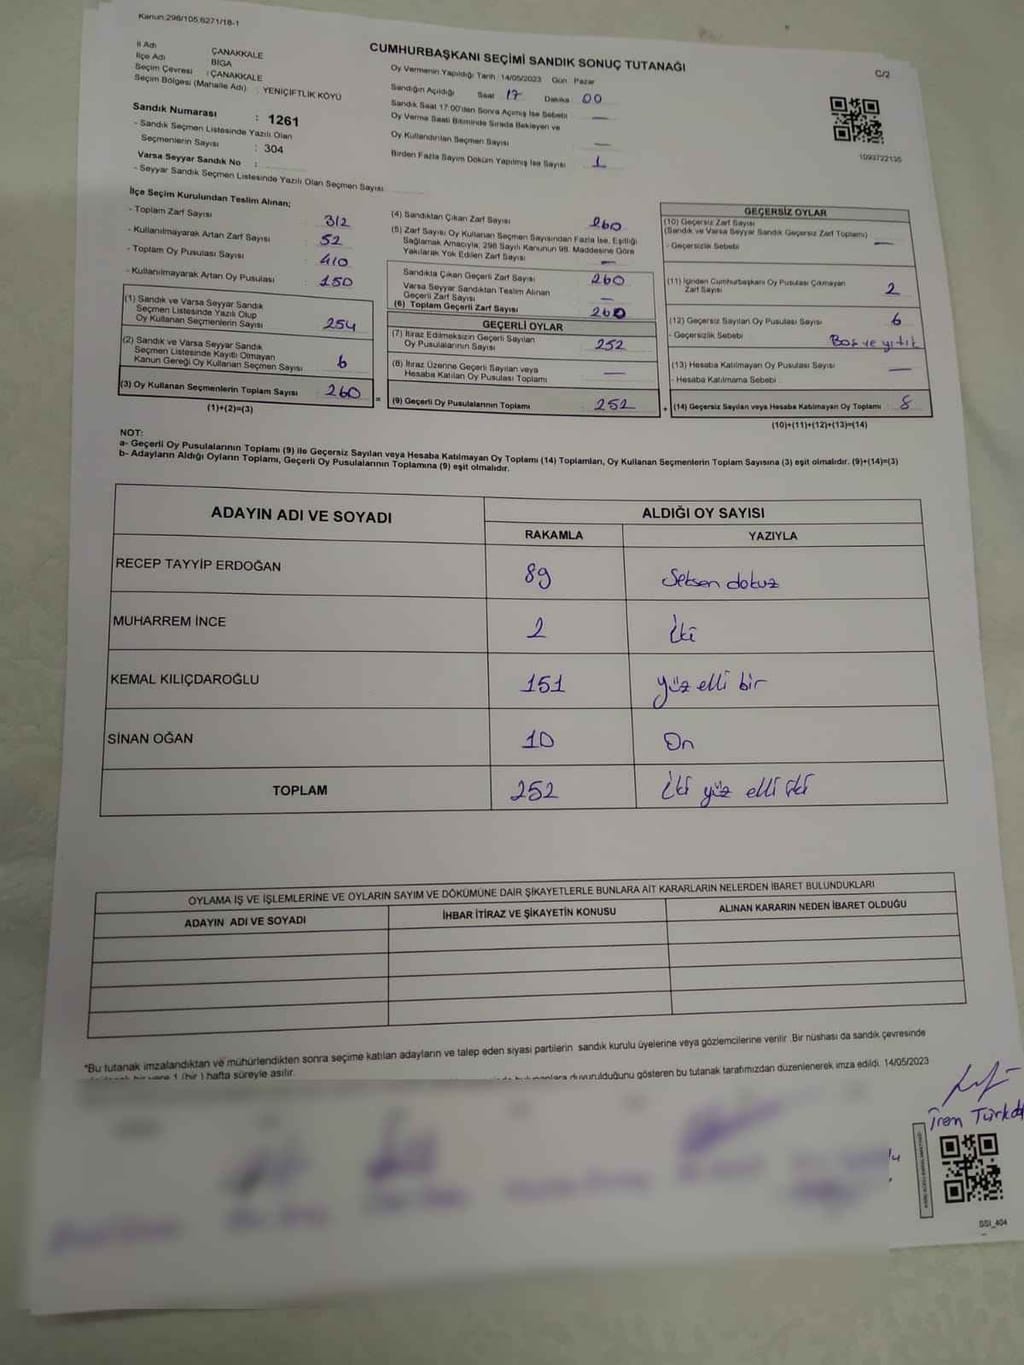 Kanun:298/105,6271/18-1
CUMHURBAŞKANI SEÇİMİ SANDIK SONUÇ TUTANAĞI
C/2
İl Adı ÇANAKKALE
İlçe Adı BİGA
Seçim Çevresi : ÇANAKKALE
Seçim Bölgesi (Mahalle Adı) : YENİÇİFTLİK KÖYÜ
Sandık Numarası : 1261
- Sandık Seçmen Listesinde Yazılı Olan
Seçmenlerin Sayısı : 304
Varsa Seyyar Sandık No :
- Seyyar Sandık Seçmen Listesinde Yazılı Olan Seçmen Sayısı
Oy Vermenin Yapıldığı Tarih : 14/05/2023 Gün Pazar
Sandığın Açıldığı Saat 17 Dakika 00
Sandık Saat 17:00'den Sonra Açılmış İse Sebebi —
Oy Verme Saati Bitiminde Sırada Bekleyen ve
Oy Kullandırılan Seçmen Sayısı —
Birden Fazla Sayım Döküm Yapılmış İse Sayısı 1
1093722135
İlçe Seçim Kurulundan Teslim Alınan;
- Toplam Zarf Sayısı 312
- Kullanılmayarak Artan Zarf Sayısı 52
- Toplam Oy Pusulası Sayısı 410
- Kullanılmayarak Artan Oy Pusulası 150
(1) Sandık ve Varsa Seyyar Sandık
Seçmen Listesinde Yazılı Olup
Oy Kullanan Seçmenlerin Sayısı 254
(2) Sandık ve Varsa Seyyar Sandık
Seçmen Listesinde Kayıtlı Olmayan
Kanun Gereği Oy Kullanan Seçmen Sayısı 6
(3) Oy Kullanan Seçmenlerin Toplam Sayısı 260
(1)+(2)=(3)
=
(4) Sandıktan Çıkan Zarf Sayısı 260
(5) Zarf Sayısı Oy Kullanan Seçmen Sayısından Fazla İse, Eşitliği
Sağlamak Amacıyla, 298 Sayılı Kanunun 98. Maddesine Göre
Yakılarak Yok Edilen Zarf Sayısı —
Sandıkta Çıkan Geçerli Zarf Sayısı 260
Varsa Seyyar Sandıktan Teslim Alınan
Geçerli Zarf Sayısı —
(6) Toplam Geçerli Zarf Sayısı 260
GEÇERLİ OYLAR
(7) İtiraz Edilmeksizin Geçerli Sayılan
Oy Pusulalarının Sayısı 252
(8) İtiraz Üzerine Geçerli Sayılan veya
Hesaba Katılan Oy Pusulası Toplamı —
(9) Geçerli Oy Pusulalarının Toplamı 252
+
GEÇERSİZ OYLAR
(10) Geçersiz Zarf Sayısı
(Sandık ve Varsa Seyyar Sandık Geçersiz Zarf Toplamı) —
- Geçersizlik Sebebi
(11) İçinden Cumhurbaşkanı Oy Pusulası Çıkmayan
Zarf Sayısı 2
(12) Geçersiz Sayılan Oy Pusulası Sayısı 6
- Geçersizlik Sebebi Boş ve yırtık
(13) Hesaba Katılmayan Oy Pusulası Sayısı —
- Hesaba Katılmama Sebebi
(14) Geçersiz Sayılan veya Hesaba Katılmayan Oy Toplamı 8
(10)+(11)+(12)+(13)=(14)
NOT:
a- Geçerli Oy Pusulalarının Toplamı (9) ile Geçersiz Sayılan veya Hesaba Katılmayan Oy Toplamı (14) Toplamları, Oy Kullanan Seçmenlerin Toplam Sayısına (3) eşit olmalıdır. (9)+(14)=(3)
b- Adayların Aldığı Oyların Toplamı, Geçerli Oy Pusulalarının Toplamına (9) eşit olmalıdır.
ADAYIN ADI VE SOYADI ALDIĞI OY SAYISI
RAKAMLA YAZIYLA
RECEP TAYYİP ERDOĞAN 89 Seksen dokuz
MUHARREM İNCE 2 İki
KEMAL KILIÇDAROĞLU 151 yüz elli bir
SİNAN OĞAN 10 On
TOPLAM 252 İki yüz elli iki
OYLAMA İŞ VE İŞLEMLERİNE VE OYLARIN SAYIM VE DÖKÜMÜNE DAİR ŞİKAYETLERLE BUNLARA AİT KARARLARIN NELERDEN İBARET BULUNDUKLARI
ADAYIN ADI VE SOYADI İHBAR İTİRAZ VE ŞİKAYETİN KONUSU ALINAN KARARIN NEDEN İBARET OLDUĞU
*Bu tutanak imzalandıktan ve mühürlendikten sonra seçime katılan adayların ve talep eden siyasi partilerin sandık kurulu üyelerine veya gözlemcilerine verilir .Bir nüshası da sandık çevresinde
bir yere 1 (bir ) hafta süreyle asılır.
duyurulduğunu gösteren bu tutanak tarafımızdan düzenlenerek imza edildi. 14/05/2023
İrem
SSİ_404